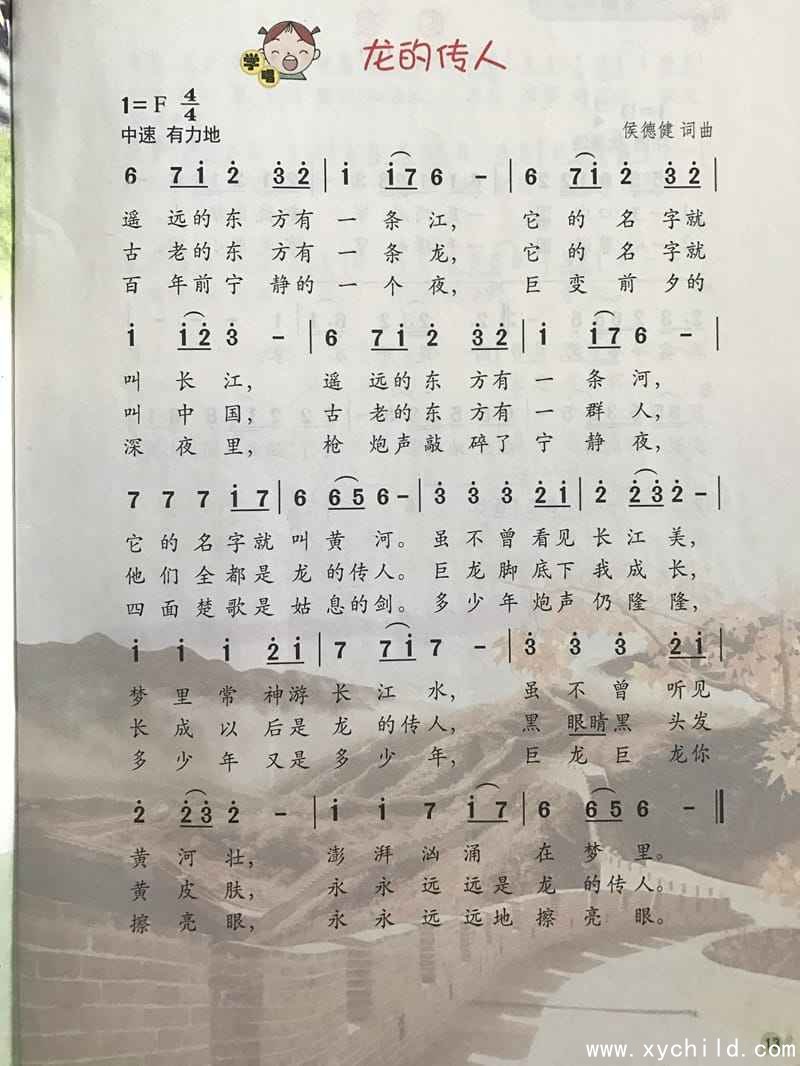 学唱 龙的传人
1=F 4/4
中速 有力地
侯德健 词曲
6 7i̇ 2̇ 3̇2̇ | i̇ i̇76 - | 6 7i̇ 2̇ 3̇2̇ |
遥 远的东 方有 一 条江, 它 的名 字就
古 老的东 方有 一 条龙, 它 的名 字就
百 年前宁 静的 一 个夜, 巨 变前 夕的
i̇ i̇2̇ 3̇ - | 6 7i̇ 2̇ 3̇2̇ | i̇ i̇7 6 - |
叫 长江, 遥 远的东 方有 一 条河,
叫 中国, 古 老的东 方有 一 群人,
深 夜里, 枪 炮声敲 碎了 宁 静夜,
7 7 7 i̇7 | 6 65 6 - | 3̇ 3̇ 3̇ 2̇i̇ | 2̇ 2̇3̇ 2̇ - |
它的名字就叫黄河。虽不曾看见长江美,
他们全都是龙的传人。巨龙脚底下我成长,
四面楚歌是姑息的剑。多少年炮声仍隆隆,
i̇ i̇ i̇ 2̇i̇ | 7 7i̇ 7 - | 3̇ 3̇ 3̇ 2̇i̇ |
梦里常神游长江水, 虽不曾听见
长成以后是龙的传人, 黑眼睛黑头发
多少年又是多少年, 巨龙巨龙你
2̇ 2̇3̇ 2̇ - | i̇ i̇ 7 i̇7 | 6 65 6 - ‖
黄河壮, 澎湃汹涌在梦里。
黄皮肤, 永永远远是龙的传人。
擦亮眼, 永永远远地擦亮眼。
13
www.xychild.com